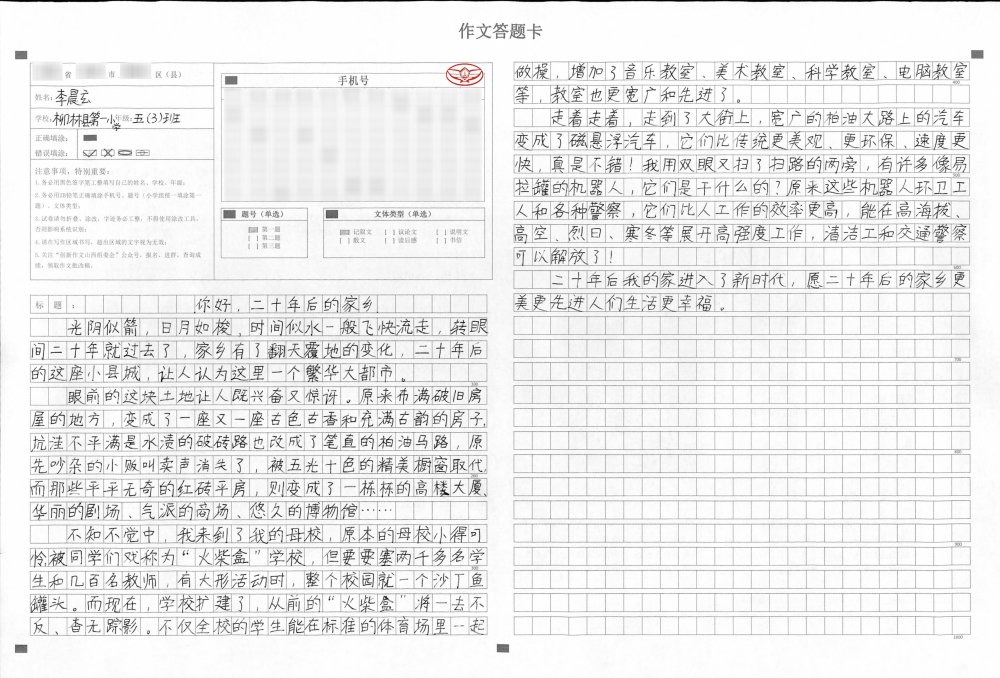 作文答题卡
省 市 区（县）
姓名：李晨宏
学校：柳林县第一小学 年级：五（3）班
正确填涂：
错误填涂：
注意事项，特别重要：
1.务必用黑色签字笔工整填写自己的姓名、学校、年级；
2.务必用2B铅笔正确填涂手机号、题号（小学组统一填涂第一题）、文体类型；
3.试卷请勿折叠、涂改，字迹务必工整，不得使用涂改工具，否则影响系统识别；
4.请在写作区域书写，超出区域的文字视为无效；
5.关注“创新作文山西组委会”公众号，报名、进群、查询成绩、领取作文批改稿。
手机号
题号（单选）
第一题
[ ] 第二题
[ ] 第三题
文体类型（单选）
记叙文 [ ] 议论文 [ ] 说明文
[ ] 散文 [ ] 读后感 [ ] 书信
标 题：你好，二十年后的家乡
光阴似箭，日月如梭，时间似水一般飞快流走，转眼
间二十年就过去了，家乡有了翻天覆地的变化，二十年后
的这座小县城，让人认为这里一个繁华大都市。
100
眼前的这块土地让人既兴奋又惊讶。原来布满破旧房
屋的地方，变成了一座又一座古色古香和充满古韵的房子，
坑洼不平满是水渍的破砖路也改成了笔直的柏油马路，原
先吵杂的小贩叫卖声消失了，被五光十色的精美橱窗取代，
200
而那些平平无奇的红砖平房，则变成了一栋栋的高楼大厦、
华丽的剧场、气派的商场、悠久的博物馆……
不知不觉中，我来到了我的母校，原本的母校小得可
怜被同学们戏称为“火柴盒”学校，但要要塞两千多名学
300
生和几百名教师，有大形活动时，整个校园就一个沙丁鱼
罐头。而现在，学校扩建了，从前的“火柴盒”将一去不
反、查无踪影。不仅全校的学生能在标准的体育场里一起
做操，增加了音乐教室、美术教室、科学教室、电脑教室
400
等，教室也更宽广和先进了。
走着走着，走到了大街上，宽广的柏油大路上的汽车
变成了磁悬浮汽车，它们比传统更美观、更环保、速度更
快，真是不错！我用双眼又扫了扫路的两旁，有许多像易
500
拉罐的机器人，它们是干什么的？原来这些机器人环卫工
人和各种警察，它们比人工作的效率更高，能在高海拔、
高空、烈日、寒冬等展开高强度工作，清洁工和交通警察
可以解放了！
600
二十年后我的家进入了新时代，愿二十年后的家乡更
美更先进人们生活更幸福。
700
800
900
1000